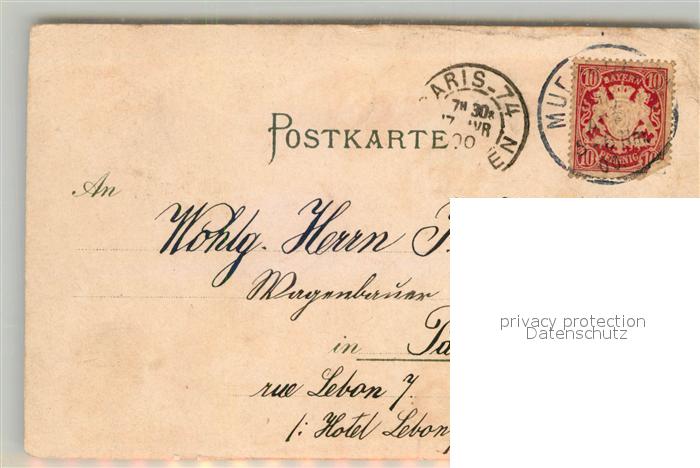 PARIS-74
7H 30
17 AVR
00
MUE
10 BAYERN 10
10 PFENNIG 10
POSTKARTE
An
Wohlg. Herrn
Wagenbauer
in
rue Lebon 7.
/: Hotel Lebon
privacy protection
Datenschutz